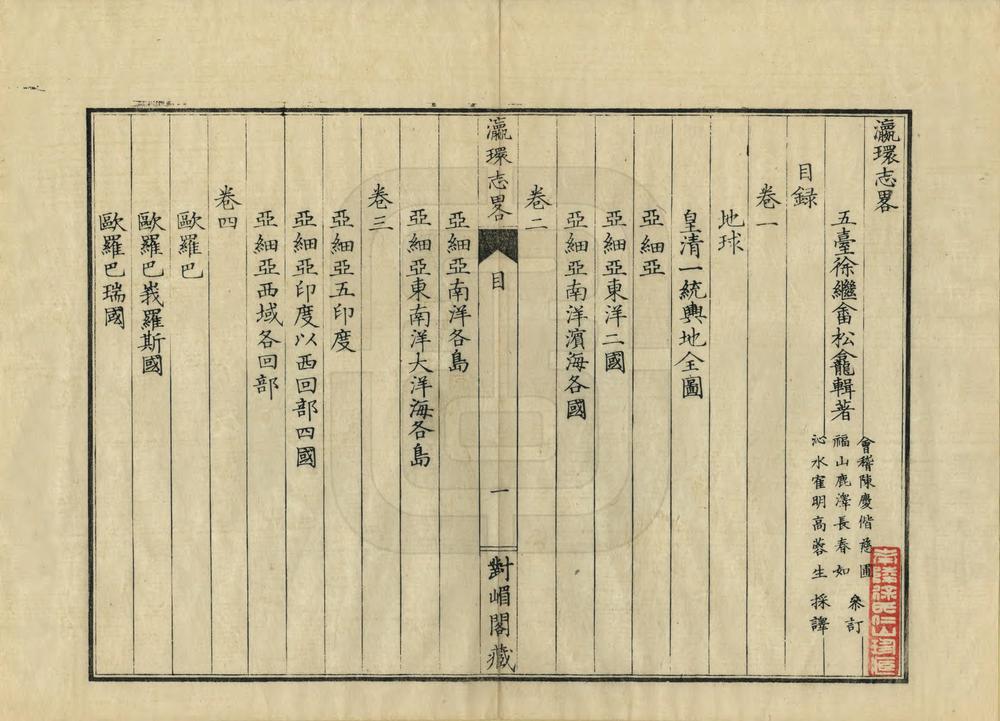 瀛環志畧
五臺徐繼畬松龕輯著
會稽陳慶偕慈圃
福山鹿澤長春如
參訂
沁水窑明高蓉生 採譯
目録
卷一
地球
皇清一統輿地全圖
亞細亞
亞細亞東洋二國
亞細亞南洋濱海各國
卷二
瀛環志畧
目
一
對嵋閣藏
亞細亞南洋各島
亞細亞東南洋大洋海各島
卷三
亞細亞五印度
亞細亞印度以西回部四國
亞細亞西域各回部
卷四
歐羅巴
歐羅巴峩羅斯國
歐羅巴瑞國